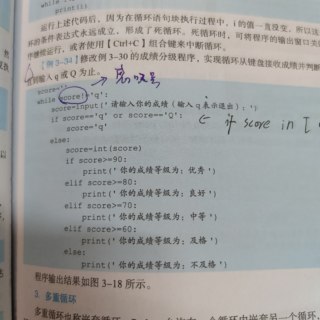 print(i)
运行上述代码后，因为在循环语句块执行过程中，i 的值一直没变，所以这
环的条件表达式永远成立，形成了死循环。死循环时，可将程序的输出窗口关
序继续运行，或者使用【Ctrl+C】组合键来中断循环。
【例 3-34】修改例 3-30 的成绩分级程序，实现循环从键盘接收成绩并判断
直到输入 q 或 Q 为止。
score=''
while score!='q':
score=input('请输入你的成绩（输入 q 表示退出）：')
if score=='q' or score=='Q':
← if score in [
score='q'
else:
score=int(score)
if score>=90:
print('你的成绩等级为：优秀')
elif score>=80:
print('你的成绩等级为：良好')
elif score>=70:
print('你的成绩等级为：中等')
elif score>=60:
print('你的成绩等级为：及格')
else:
print('你的成绩等级为：不及格')
程序输出结果如图 3-18 所示。
3. 多重循环